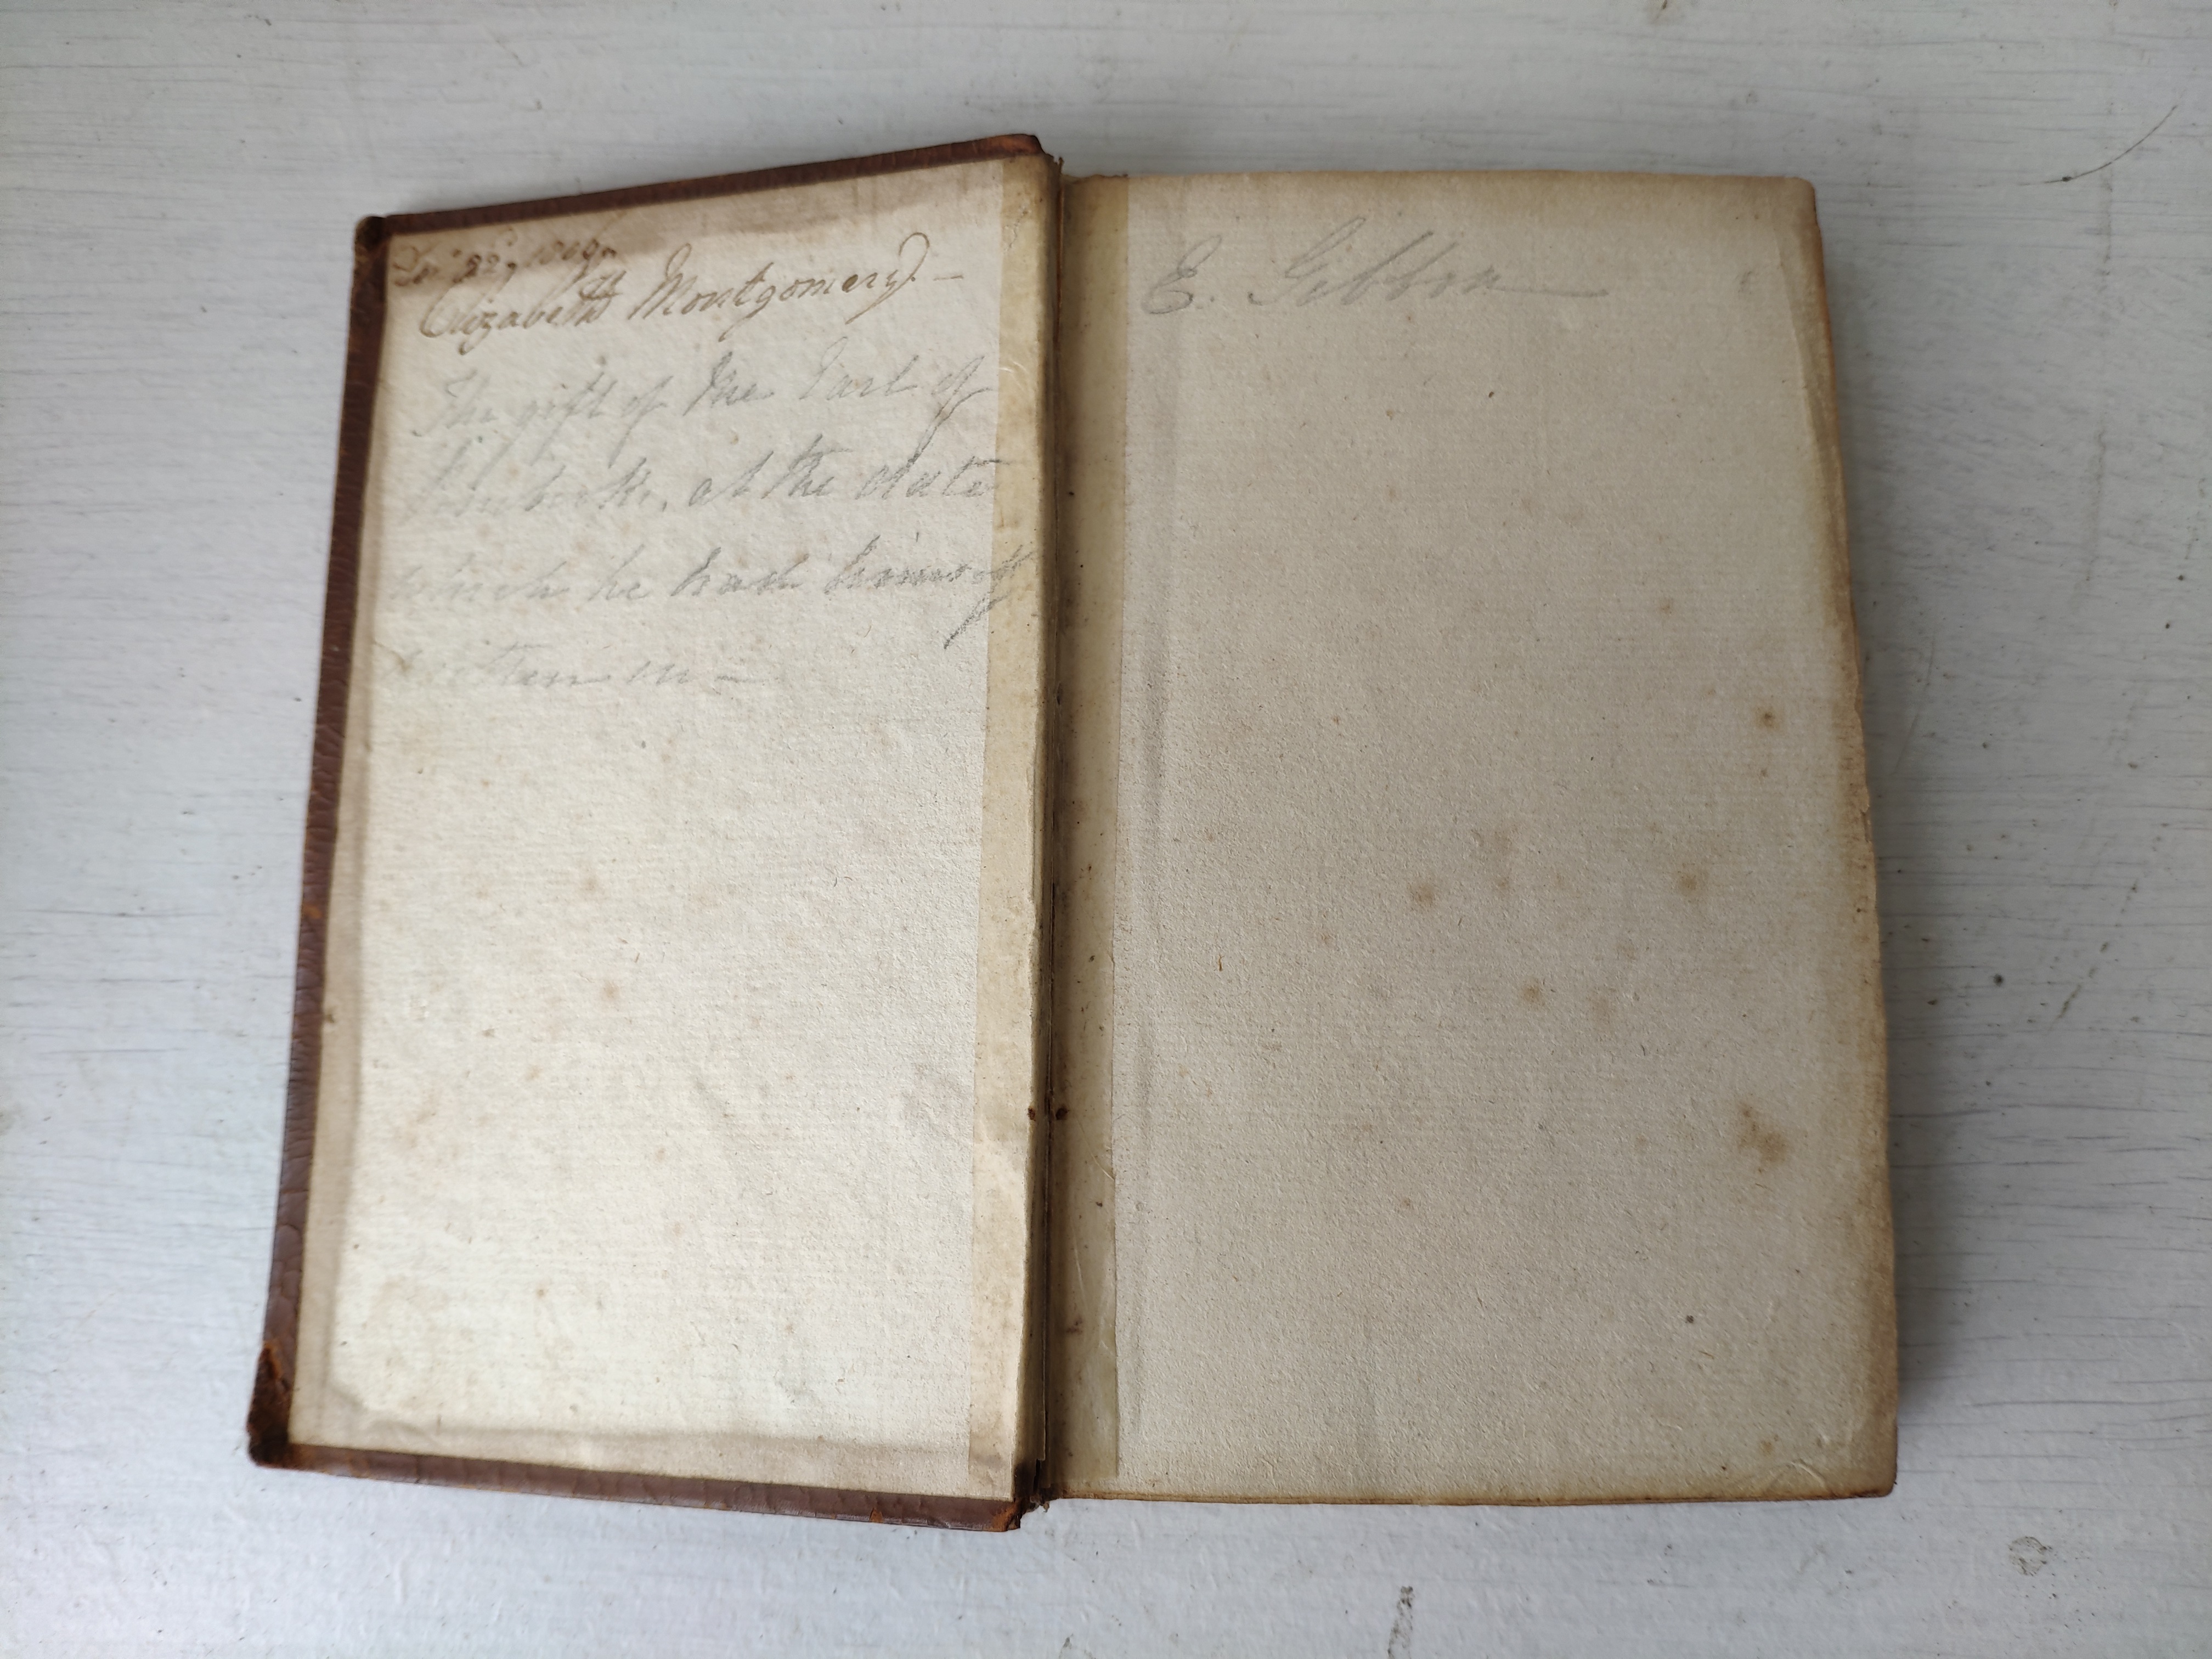 22d, 1806
Elizabeth Montgomery. –
The gift of the Earl of
at the date
which he has himself
written in –
E. Gibbon